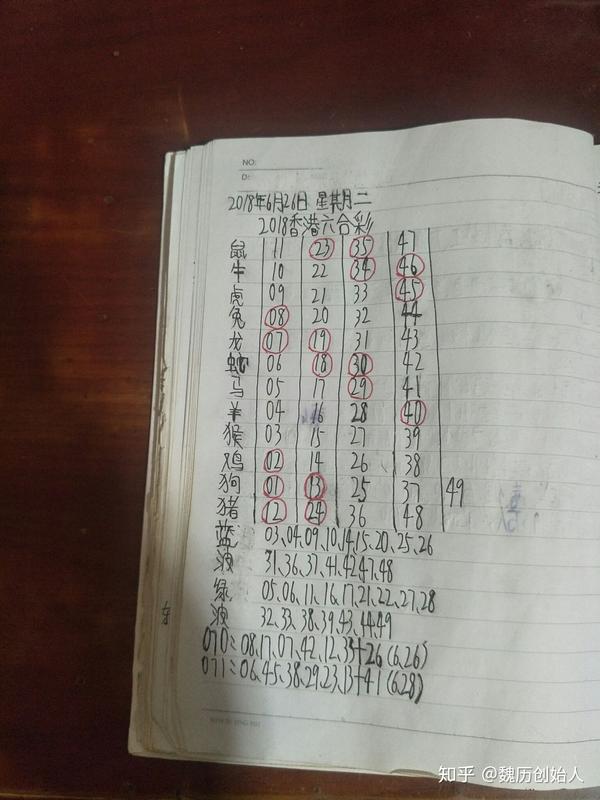 NO:
D
2018年6月26日 星期二
2018香港六合彩
鼠 11 23 35 47
牛 10 22 34 46
虎 09 21 33 45
兔 08 20 32 44
龙 07 19 31 43
蛇 06 18 30 42
马 05 17 29 41
羊 04 16 28 40
猴 03 15 27 39
鸡 02 14 26 38
狗 01 13 25 37 49
猪 12 24 36 48
蓝 03、04、09、10、14、15、20、25、26
波 31、36、37、41、42、47、48
绿 05、06、11、16、17、21、22、27、28
波 32、33、38、39、43、44、49
070:08、17、07、42、12、39+26(6、26)
071:06、45、38、29、23、13+41(6、28)
知乎 @魏历创始人